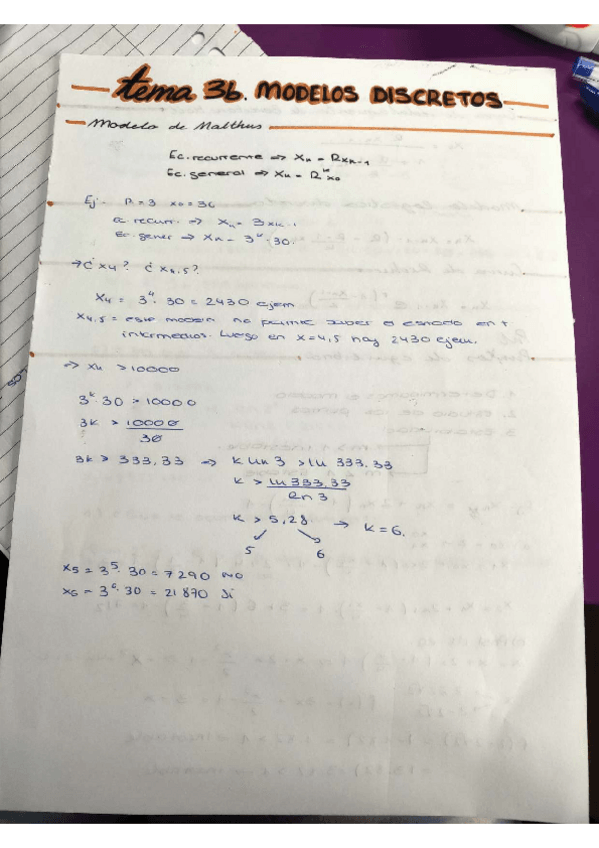 tema 3b. MODELOS DISCRETOS
Modelo de Malthus
Ec. recurrente => Xk = R Xk-1
Ec. general => Xk = R^k X0
Ej - R = 3 X0 = 30
Ec. recurr. => Xk = 3Xk-1
Ec. gener => Xk = 3^k · 30.
→ ¿X4? ¿X4,5?
X4 = 3^4 · 30 = 2430 ejem
X4,5 = este modelo no permite saber el estado en t
intermedios. Luego en X=4,5 hay 2430 ejem.
=> Xk > 10000
3^k · 30 > 10000
3k > 10000/30
3k > 333,33 => k ln 3 > ln 333,33
k > ln 333,33 / ln 3
k > 5,28 → k = 6.
5 6
X5 = 3^5 · 30 = 7290 NO
X6 = 3^6 · 30 = 21870 Si